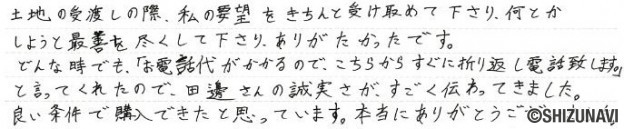 土地の受渡しの際、私の要望をきちんと受け取めて下さり、何とか
しようと最善を尽くして下さり、ありがたかったです。
どんな時でも、「お電話代がかかるので、こちらからすぐに折り返し電話致します。」
と言ってくれたので、田邊さんの誠実さがすごく伝わってきました。
良い条件で購入できたと思っています。本当にありがとうご
©SHIZUNAVI